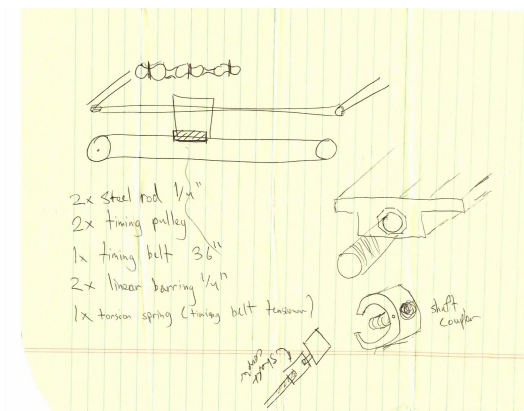 2x steel rod 1/4"
2x timing pulley
1x timing belt 36"
2x linear barring 1/4"
1x torsion spring (timing belt tensioner)
shaft
coupler